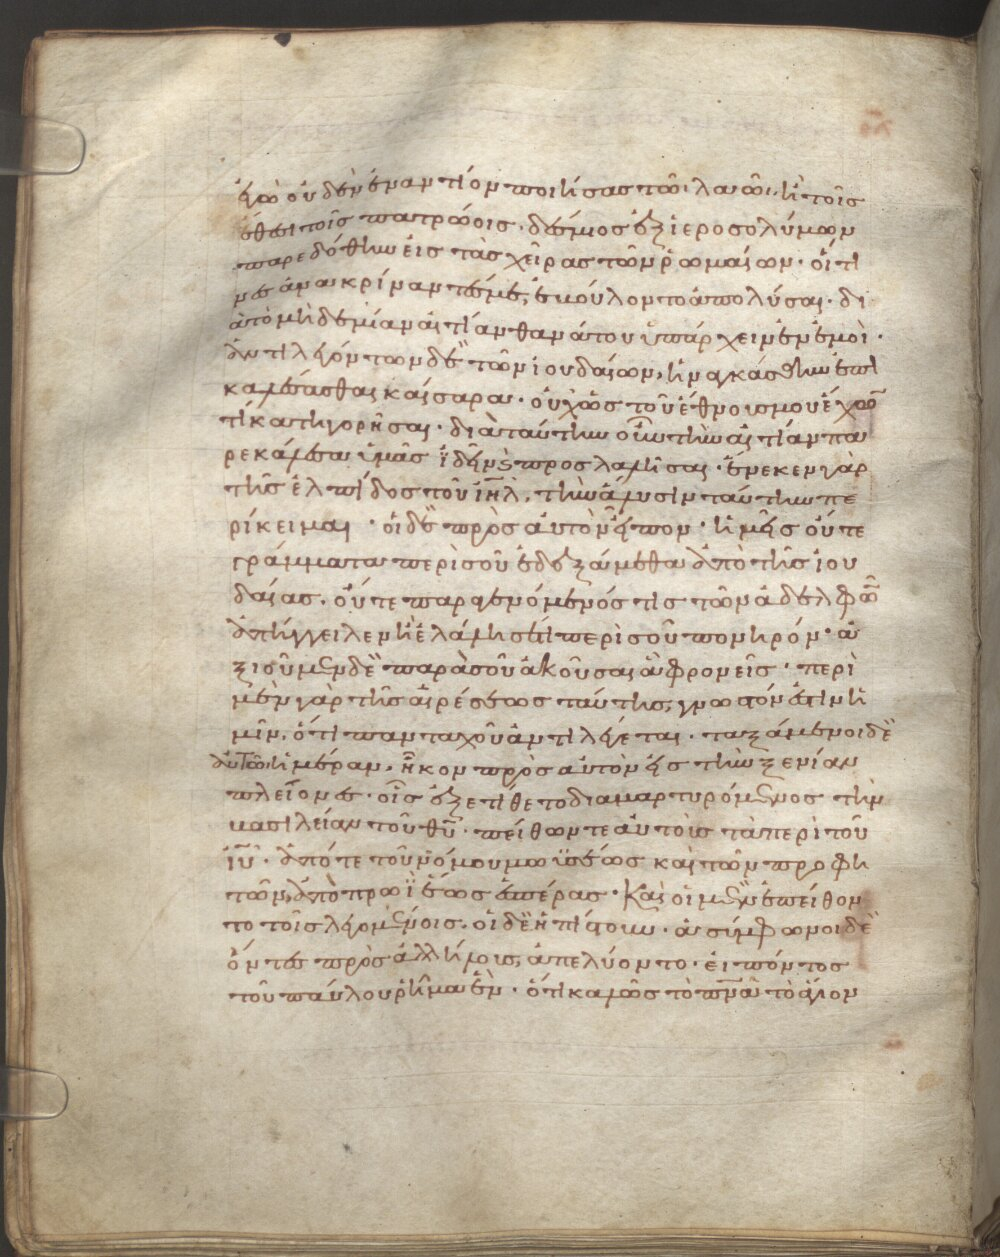 ἐγὼ οὐδὲν ἐναντίον ποιήσας τῶ λαῶ, ἢ τοῖς
ἔθεσι τοῖς πατρώοις· δέσμιος ἐξ ἱεροσολύμων
παρεδόθην εἰς τὰς χεῖρας τῶν ῥωμαίων· οἵτι
νες ἀνακρίναντές με, ἐβούλοντο ἀπολῦσαι· δι
ὰ τὸ μηδεμίαν αἰτίαν θανάτου ὑπάρχειν ἐν ἐμοί·
ἀντιλεγόντων δὲ τῶν ἰουδαίων, ἠναγκάσθην ἐπι
καλέσασθαι καίσαρα· οὐχ ὡς τοῦ ἔθνους μου ἔχων
τι κατηγορῆσαι· διὰ ταύτην οὖν τὴν αἰτίαν πα
ρεκάλεσα ὑμᾶς ἰδεῖν καὶ προσλαλῆσαι· ἕνεκεν γὰρ
τῆς ἐλπίδος τοῦ ἰηλ, τὴν ἅλυσιν ταύτην πε
ρίκειμαι· οἱ δὲ πρὸς αὐτὸν εἶπον· ἡμεῖς οὔτε
γράμματα περὶ σοῦ ἐδεξάμεθα ἀπὸ τῆς ἰου
δαίας. οὔτε παραγενόμενός τις τῶν ἀδελφῶν
ἀπήγγειλεν ἢ ἐλάλησέ τι περὶ σοῦ πονηρόν· ἀ
ξιοῦμεν δὲ παρὰ σοῦ ἀκοῦσαι ἃ φρονεῖς· περὶ
μὲν γὰρ τῆς αἱρέσεως ταύτης, γνωστόν ἐστιν ἡ
μῖν, ὅτι πανταχοῦ ἀντιλέγεται· ταξάμενοι δὲ
αὐτῶ ἡμέραν, ἧκον πρὸς αὐτὸν εἰς τὴν ξενίαν
πλείονες· οἷς ἐξετίθετο διαμαρτυρόμενος τὴν
βασιλείαν τοῦ θυ· πείθων τε αὐτοὺς τὰ περὶ τοῦ
ιυ· ἀπό τε τοῦ νόμου μωϋσέως καὶ τῶν προφη
τῶν, ἀπὸ πρωῒ ἕως ἑσπέρας· Καὶ οἱ μὲν ἐπείθον
το τοῖς λεγομένοις. οἱ δὲ ἠπίστουν· ἀσύμφωνοι δὲ
ὄντες πρὸς ἀλλήλους, ἀπελύοντο· εἰπόντος
τοῦ παύλου ῥῆμα ἕν· ὅτι καλῶς τὸ πνα τὸ ἅγιον